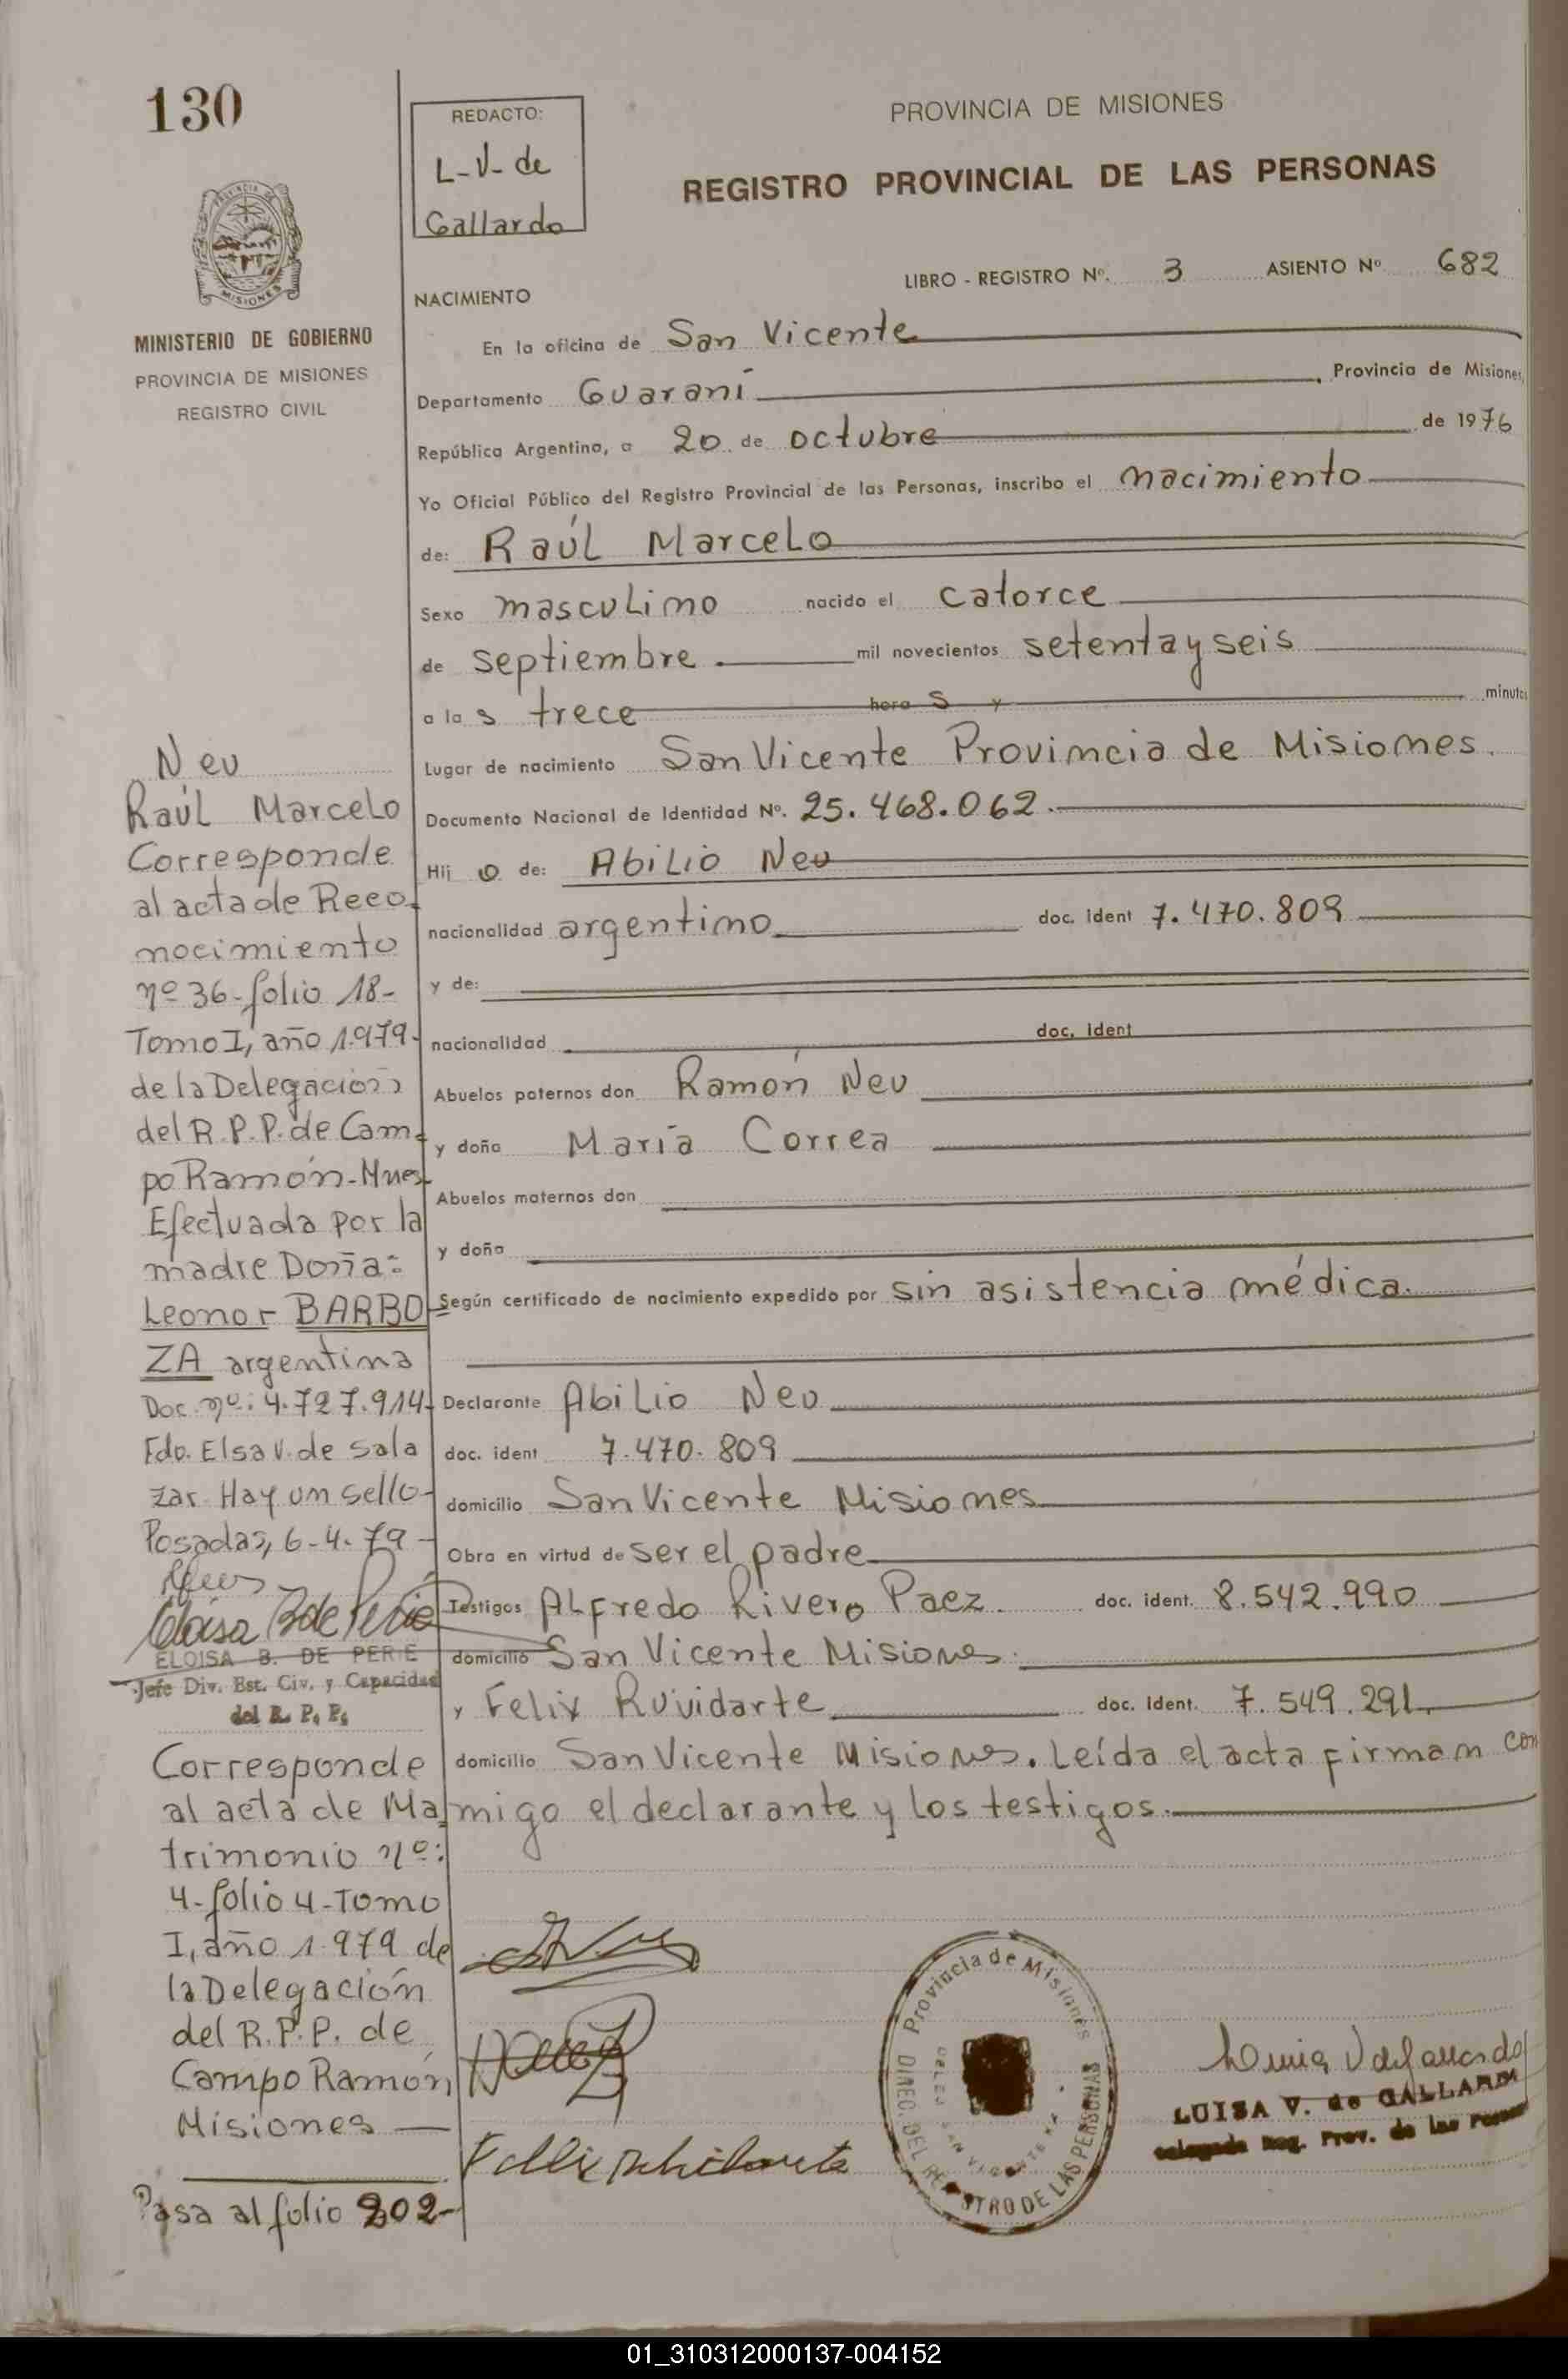 130
REDACTO:
L-V- de
Gallardo
PROVINCIA DE MISIONES
REGISTRO PROVINCIAL DE LAS PERSONAS
LIBRO - REGISTRO Nº. 3 ASIENTO Nº 682
MISIONES
MINISTERIO DE GOBIERNO
PROVINCIA DE MISIONES
REGISTRO CIVIL
NACIMIENTO
En la oficina de San Vicente
Departamento Guaraní, Provincia de Misiones,
República Argentina, a 20 de octubre de 1976
Yo Oficial Público del Registro Provincial de las Personas, inscribo el nacimiento
de: Raúl Marcelo
Sexo masculino nacido el catorce
de septiembre mil novecientos setenta y seis
a las trece hora s y minutos
Lugar de nacimiento San Vicente Provincia de Misiones.
Documento Nacional de Identidad Nº. 25.468.062.
Hij o de: Abilio Neu
nacionalidad argentino doc. ident 7.470.809
y de:
nacionalidad doc. ident
Abuelos paternos don Ramón Neu
y doña María Correa
Abuelos maternos don
y doña
Según certificado de nacimiento expedido por sin asistencia médica.
Declarante Abilio Neu
doc. ident 7.470.809
domicilio San Vicente Misiones
Obra en virtud de ser el padre
Testigos Alfredo Rivero Paez. doc. ident. 8.542.990
domicilio San Vicente Misiones.
y Felix Ruvidarte doc. ident. 7.549.291.
domicilio San Vicente Misiones. Leída el acta firman con
migo el declarante y los testigos.
Neu
Raúl Marcelo
Corresponde
al acta de Reco-
nocimiento
nº 36-folio 18-
Tomo I, año 1.979-
de la Delegación
del R.P.P. de Cam-
po Ramón-Mnes-
Efectuada por la
madre Doña:
Leonor BARBO-
ZA argentina
Doc. nº: 4.727.914-
Fdo. Elsa V. de Sala
zar. Hay un sello-
Posadas, 6-4-79-
ELOISA B. DE PERIE
Jefe Div. Est. Civ. y Capacidad
del R. P. P.
Corresponde
al acta de Ma-
trimonio nº:
4-folio 4-Tomo
I, año 1.979 de
la Delegación
del R.P.P. de
Campo Ramón
Misiones
Pasa al folio 202-
Provincia de Misiones
DIREC. DEL REGISTRO DE LAS PERSONAS
LUISA V. de GALLARDO
Delegada Reg. Prov. de las Personas
01_310312000137-004152